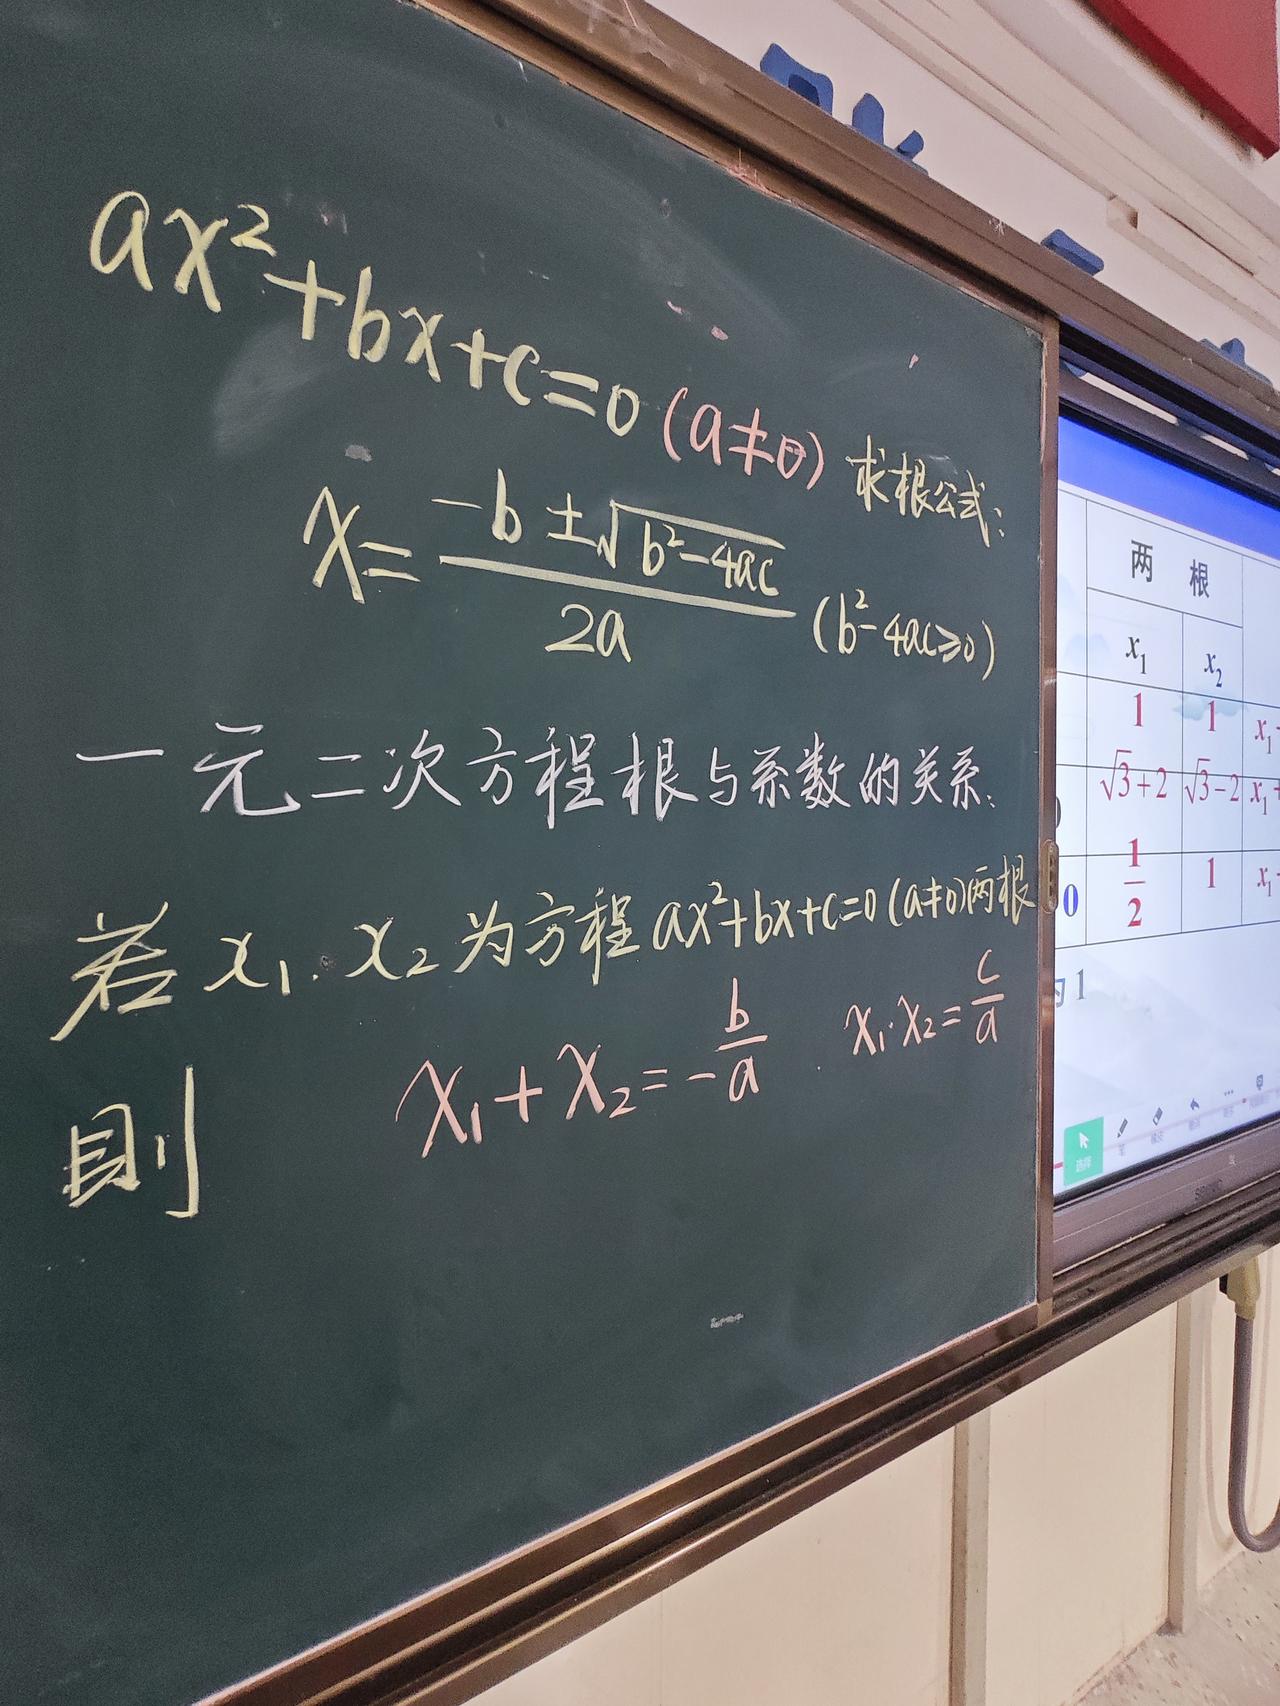 ax²+bx+c=0 (a≠0) 求根公式:
x= -b±√b²-4ac / 2a (b²-4ac≥0)
一元二次方程根与系数的关系:
若 x₁. x₂ 为方程 ax²+bx+c=0 (a≠0)两根
则 x₁+x₂=-b/a x₁·x₂=c/a
两 根
x₁ x₂
1 1 x₁
√3+2 √3-2 x₁+
0 1/2 1 x₁
为 1
选择
笔